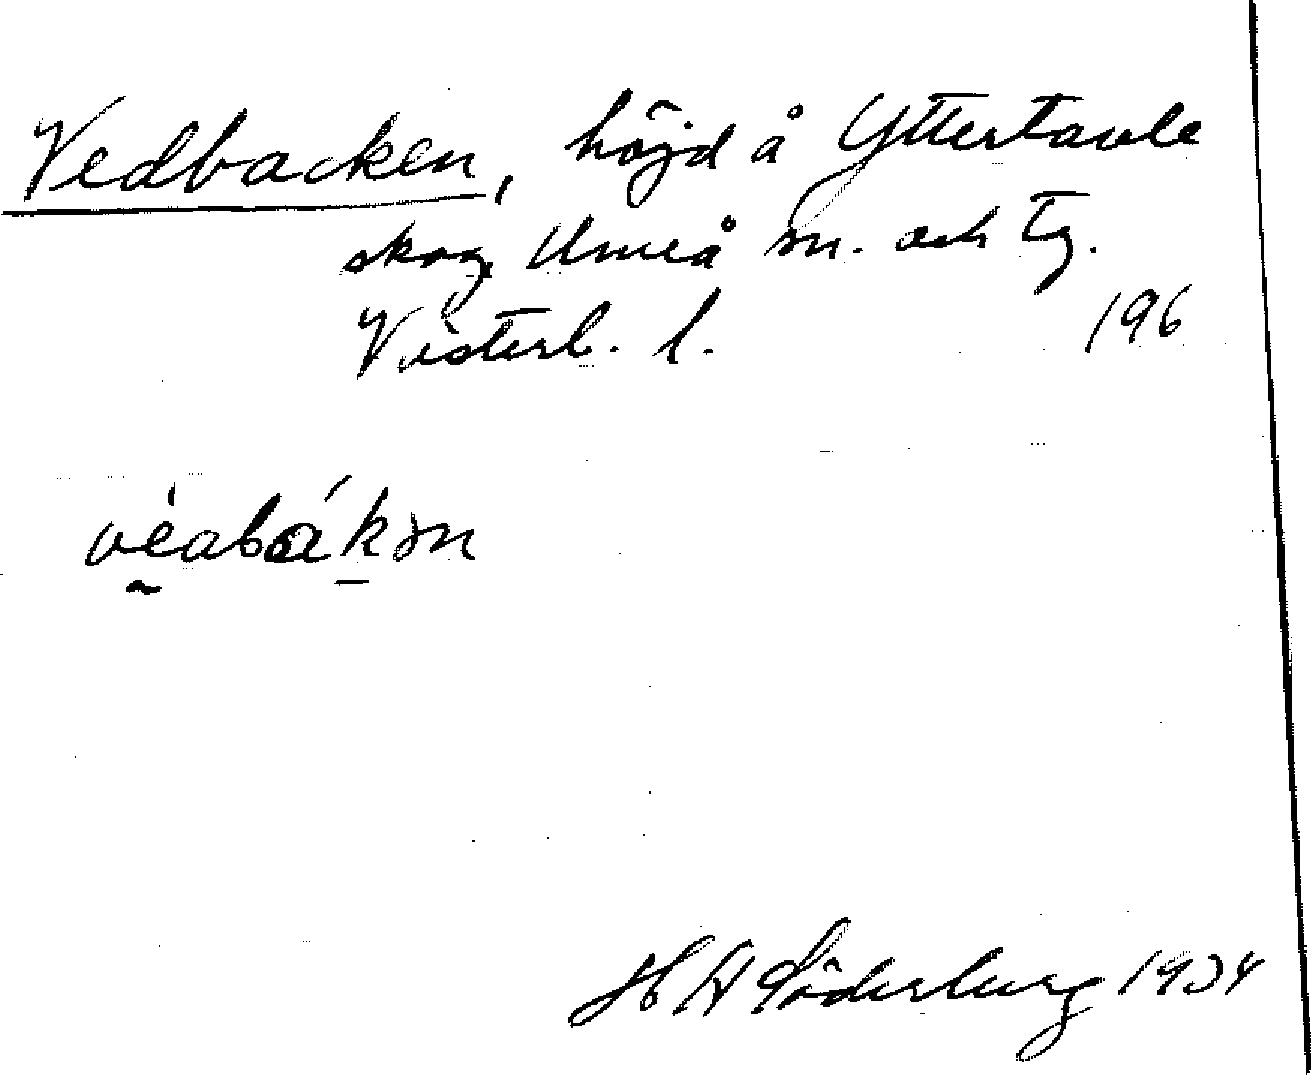 Vedbacken, höjd å Yttertavle
skog, Umeå sn. och tg.
Västerb. l. 196
véabákən
H W Söderberg 1934